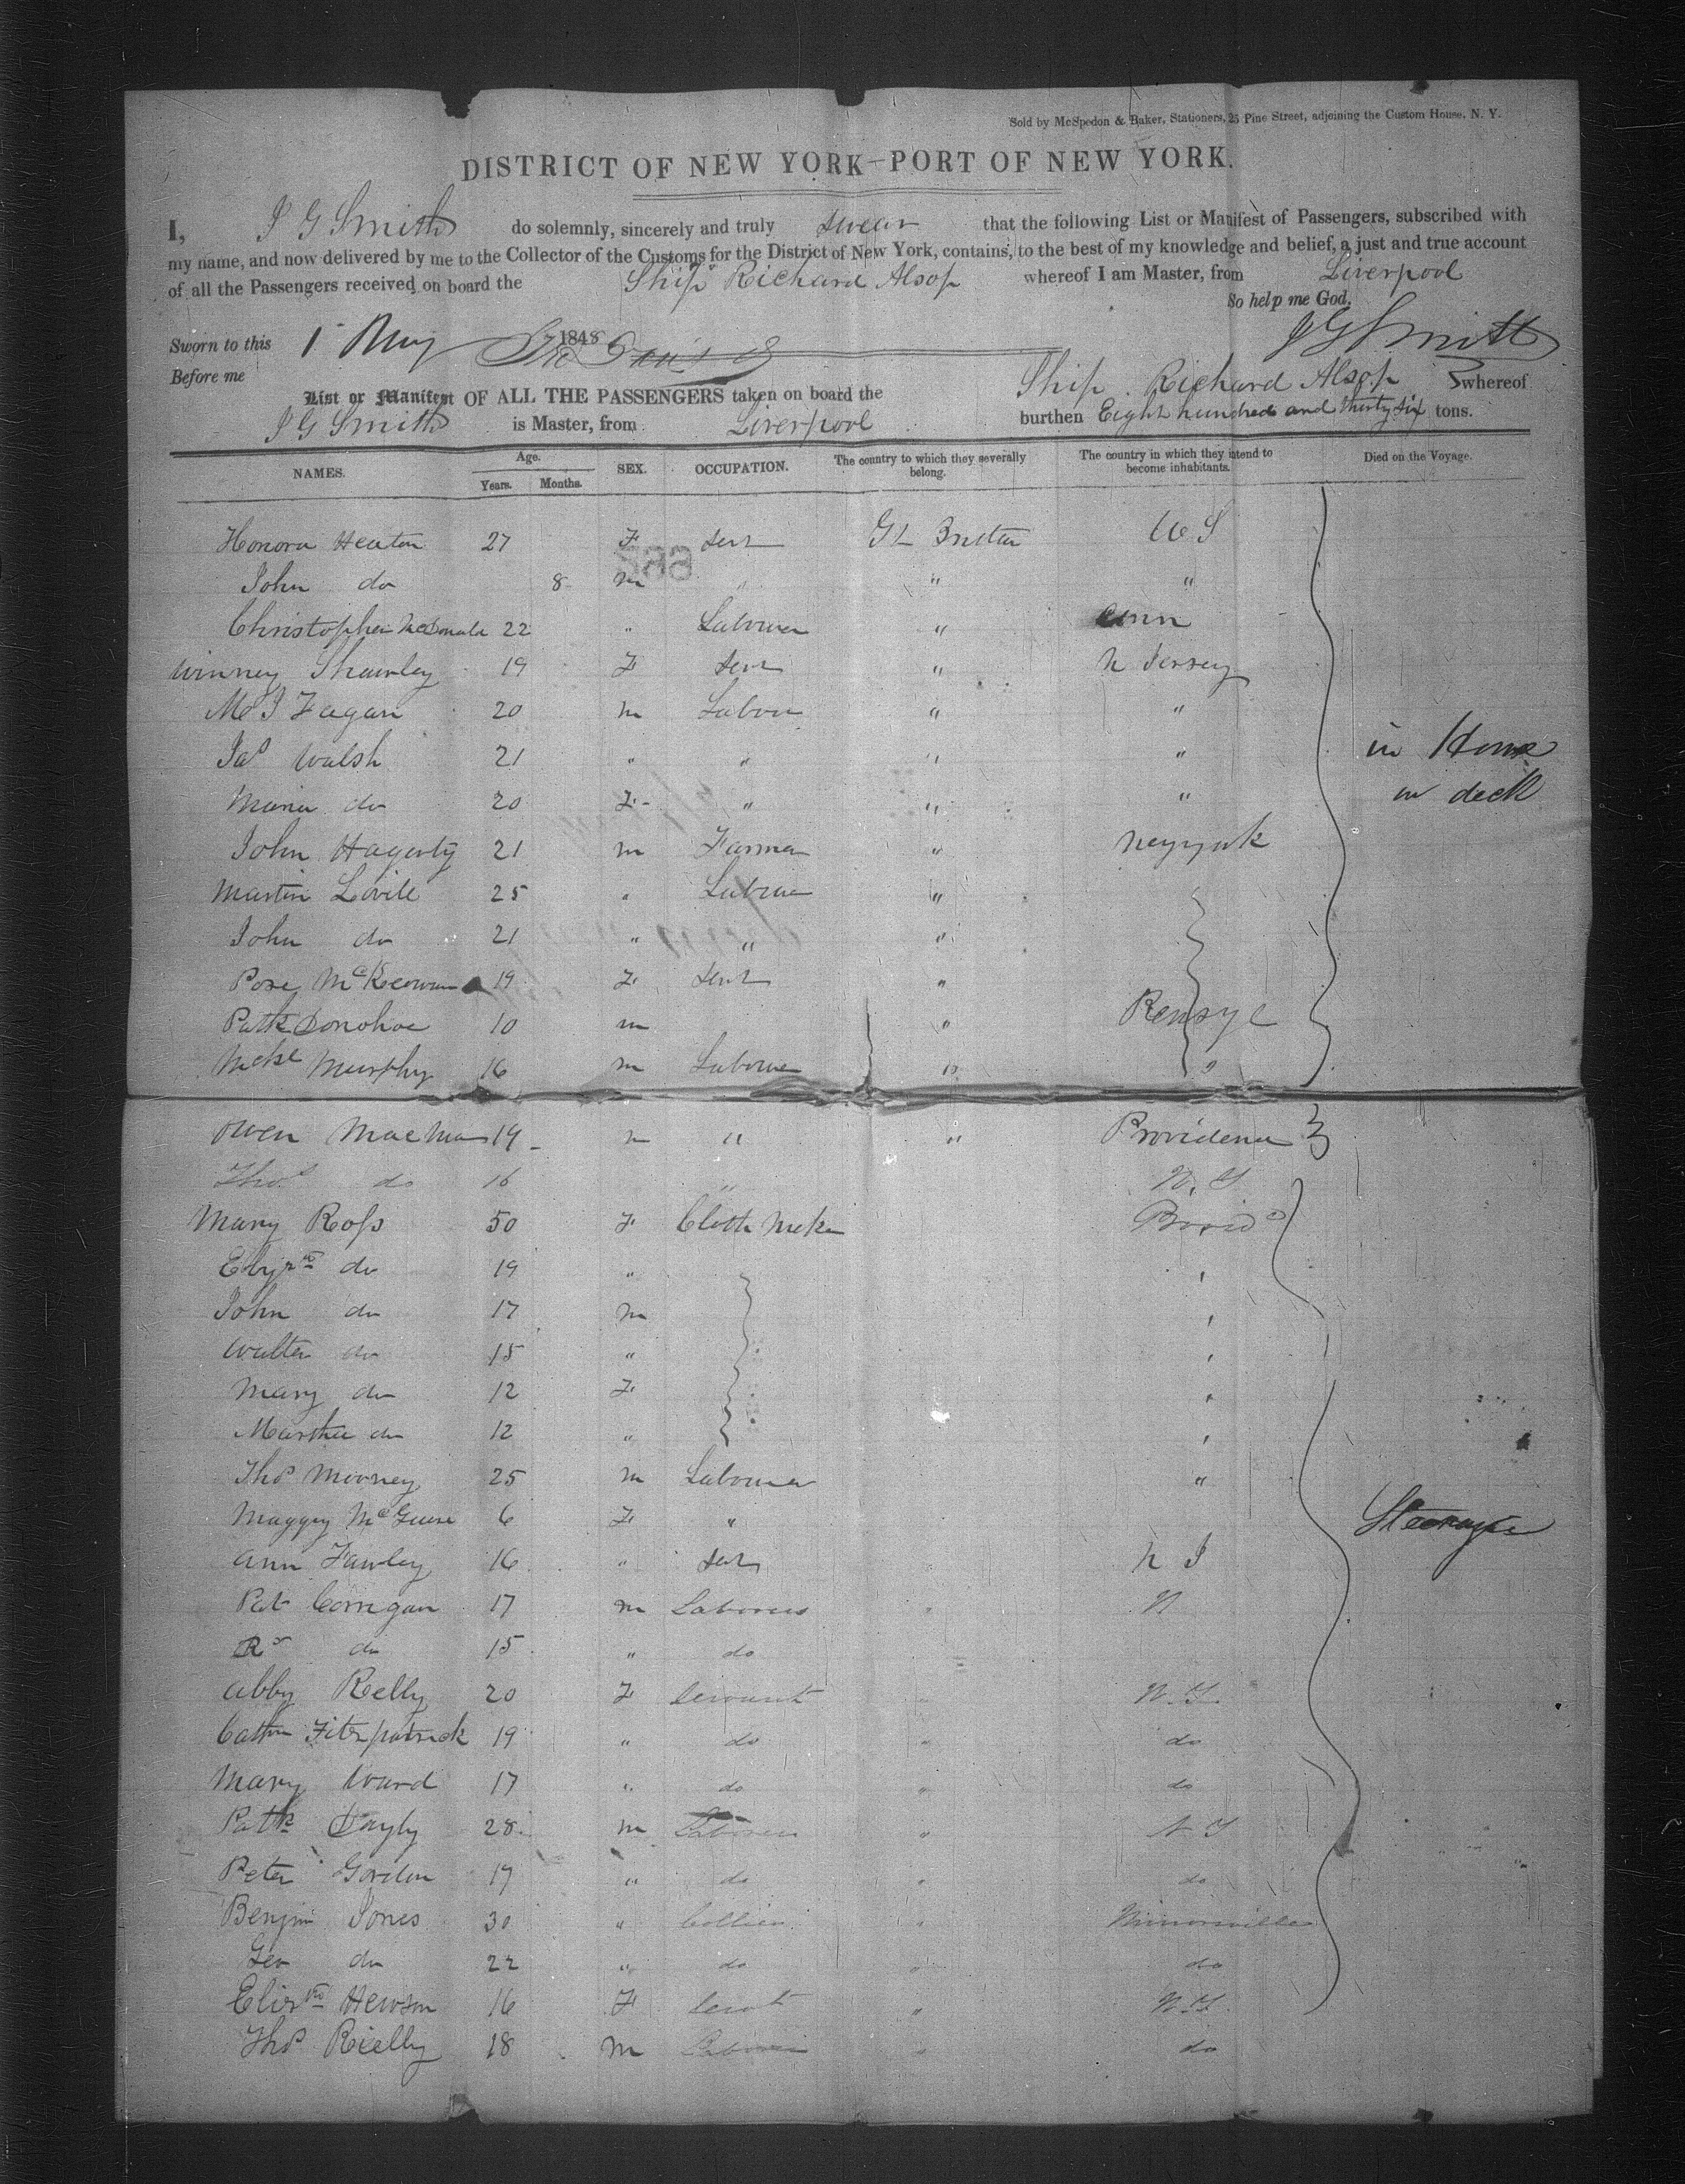 Sold by McSpedon & Baker, Stationers, 25 Pine Street, adjoining the Custom House, N. Y.
DISTRICT OF NEW YORK—PORT OF NEW YORK.
I, J G Smith do solemnly, sincerely and truly swear that the following List or Manifest of Passengers, subscribed with
my name, and now delivered by me to the Collector of the Customs for the District of New York, contains, to the best of my knowledge and belief, a just and true account
of all the Passengers received on board the Ship Richard Alsop whereof I am Master, from Liverpool
So help me God.
J G Smith
Sworn to this 1 May 1848
Before me
List or Manifest OF ALL THE PASSENGERS taken on board the Ship Richard Alsop whereof
J G Smith is Master, from Liverpool burthen Eight hundred and thirty six tons.
NAMES. Age. Years. Months. SEX. OCCUPATION. The country to which they severally belong. The country in which they intend to become inhabitants. Died on the Voyage.
Honora Heaton 27 F Sert Gt Britain U S
John do 8 m " "
Christopher McDonald 22 " Labourer " Conn
Winney Shawley 19 F Sert " N Jersey
Mc J Fagan 20 m Labour " "
Jas Walsh 21 " " " " in House
Maria do 20 F " " " on deck
John Hagerty 21 m Farmer " Newyork
Martin Lovile 25 " Labour "
John do 21 " " "
Rose McKeowan 19 F Sert "
Patk Donohoe 10 m "
Mchl Murphy 16 m Labourer " "
Owen 19 m " " Providence
Thos do 16 "
Mary Ross 50 F Cloth Maker Provid
Elizth do 19 "
John do 17 m
Walter do 15 "
Mary do 12 F
Martha do 12 "
Thos Mooney 25 m Labourer "
Maggy McGuire 6 F " Steerage
Ann Fawley 16 " Sert
Pat Corrigan 17 m Labourer N
do 15 " do
Abby Relly 20 F Servant N.Y.
Cathn Fitzpatrick 19 " do " do
Mary Ward 17 " do " do
Patk Dayly 28 m Labourer " N Y
Peter Gordon 17 " do " do
Benjm Jones 30 " Collier " Minorsville
Geo do 22 " do " do
Elizth Hewson 16 F Servt " N.Y.
Thos Rielly 18 m Labourer " do